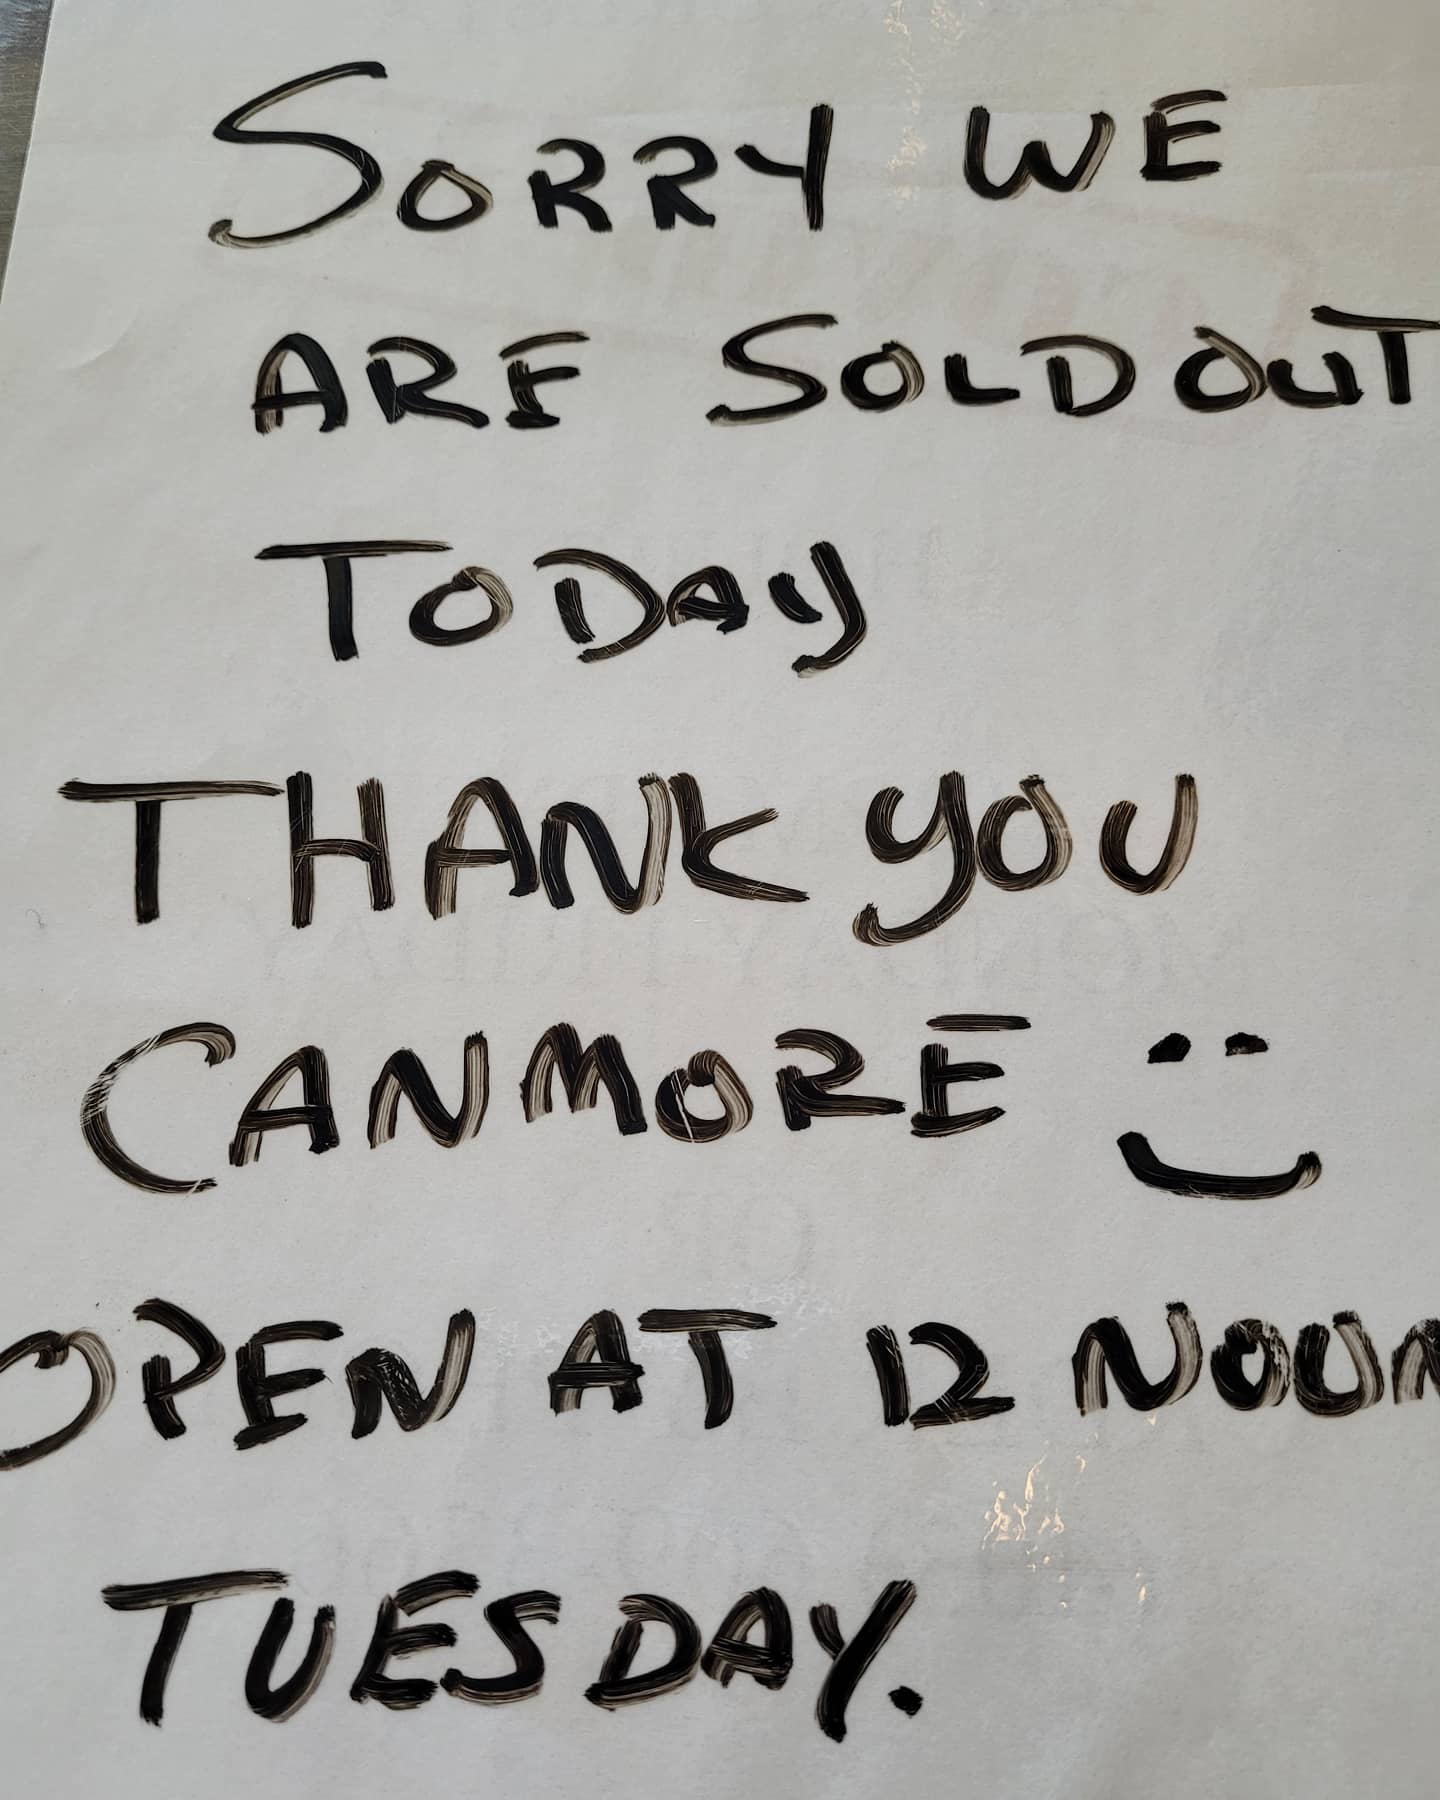 SORRY WE
ARE SOLD OUT
TODAY
THANK YOU
CANMORE
OPEN AT 12 NOON
TUESDAY.